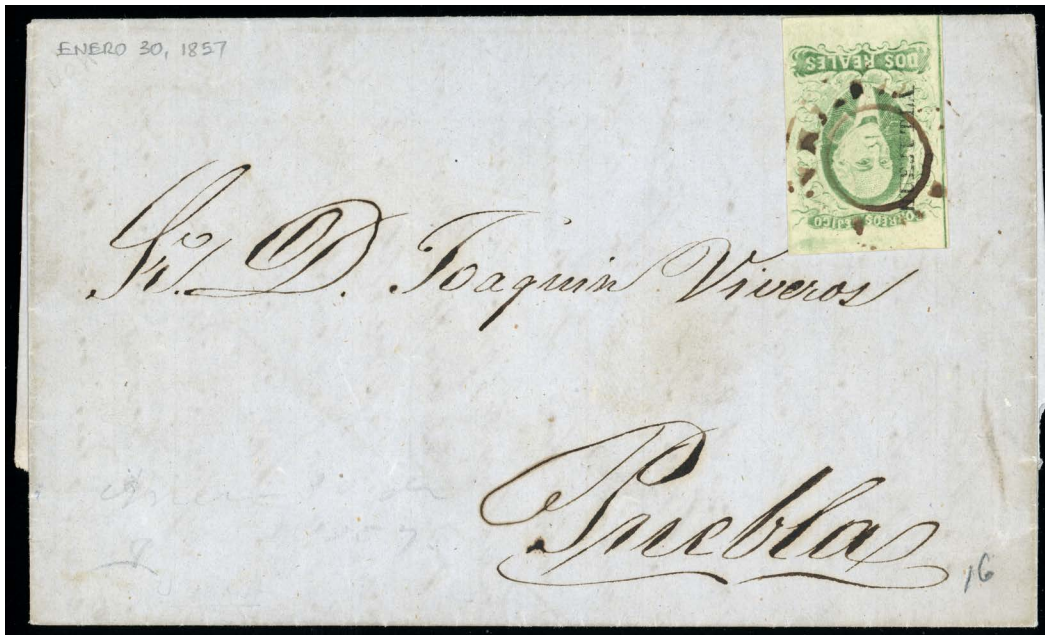 ENERO 30, 1857
DOS REALES
CORREOS MEJICO
Sr. D. Joaquin Viveros
Puebla
16